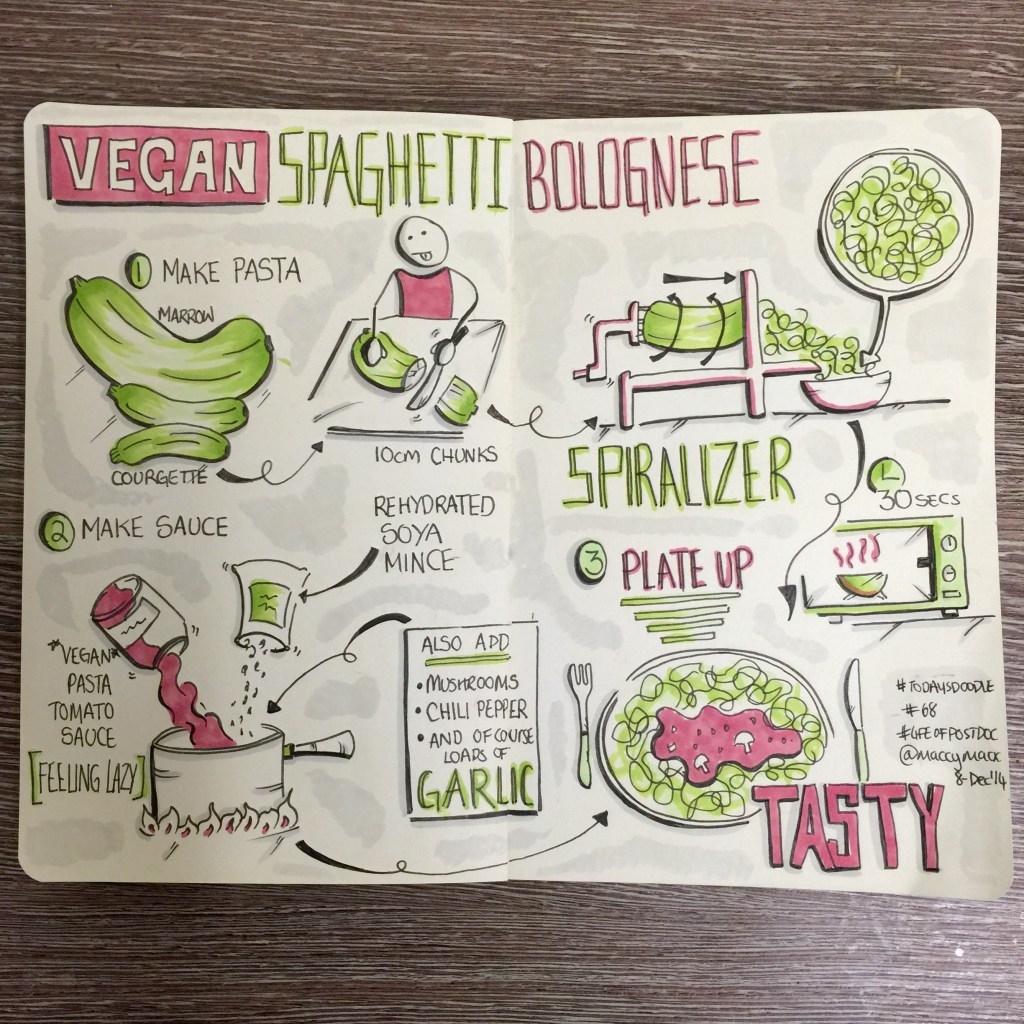 VEGAN SPAGHETTI BOLOGNESE
1 MAKE PASTA
MARROW
COURGETTE
10CM CHUNKS
SPIRALIZER
30 SECS
2 MAKE SAUCE
REHYDRATED
SOYA
MINCE
*VEGAN*
PASTA
TOMATO
SAUCE
[FEELING LAZY]
ALSO ADD
• MUSHROOMS
• CHILI PEPPER
• AND OF COURSE
LOADS OF
GARLIC
3 PLATE UP
TASTY
#TODAYSDOODLE
#68
#LIFEOFPOSTDOC
@MACCYMACX
8-Dec'14